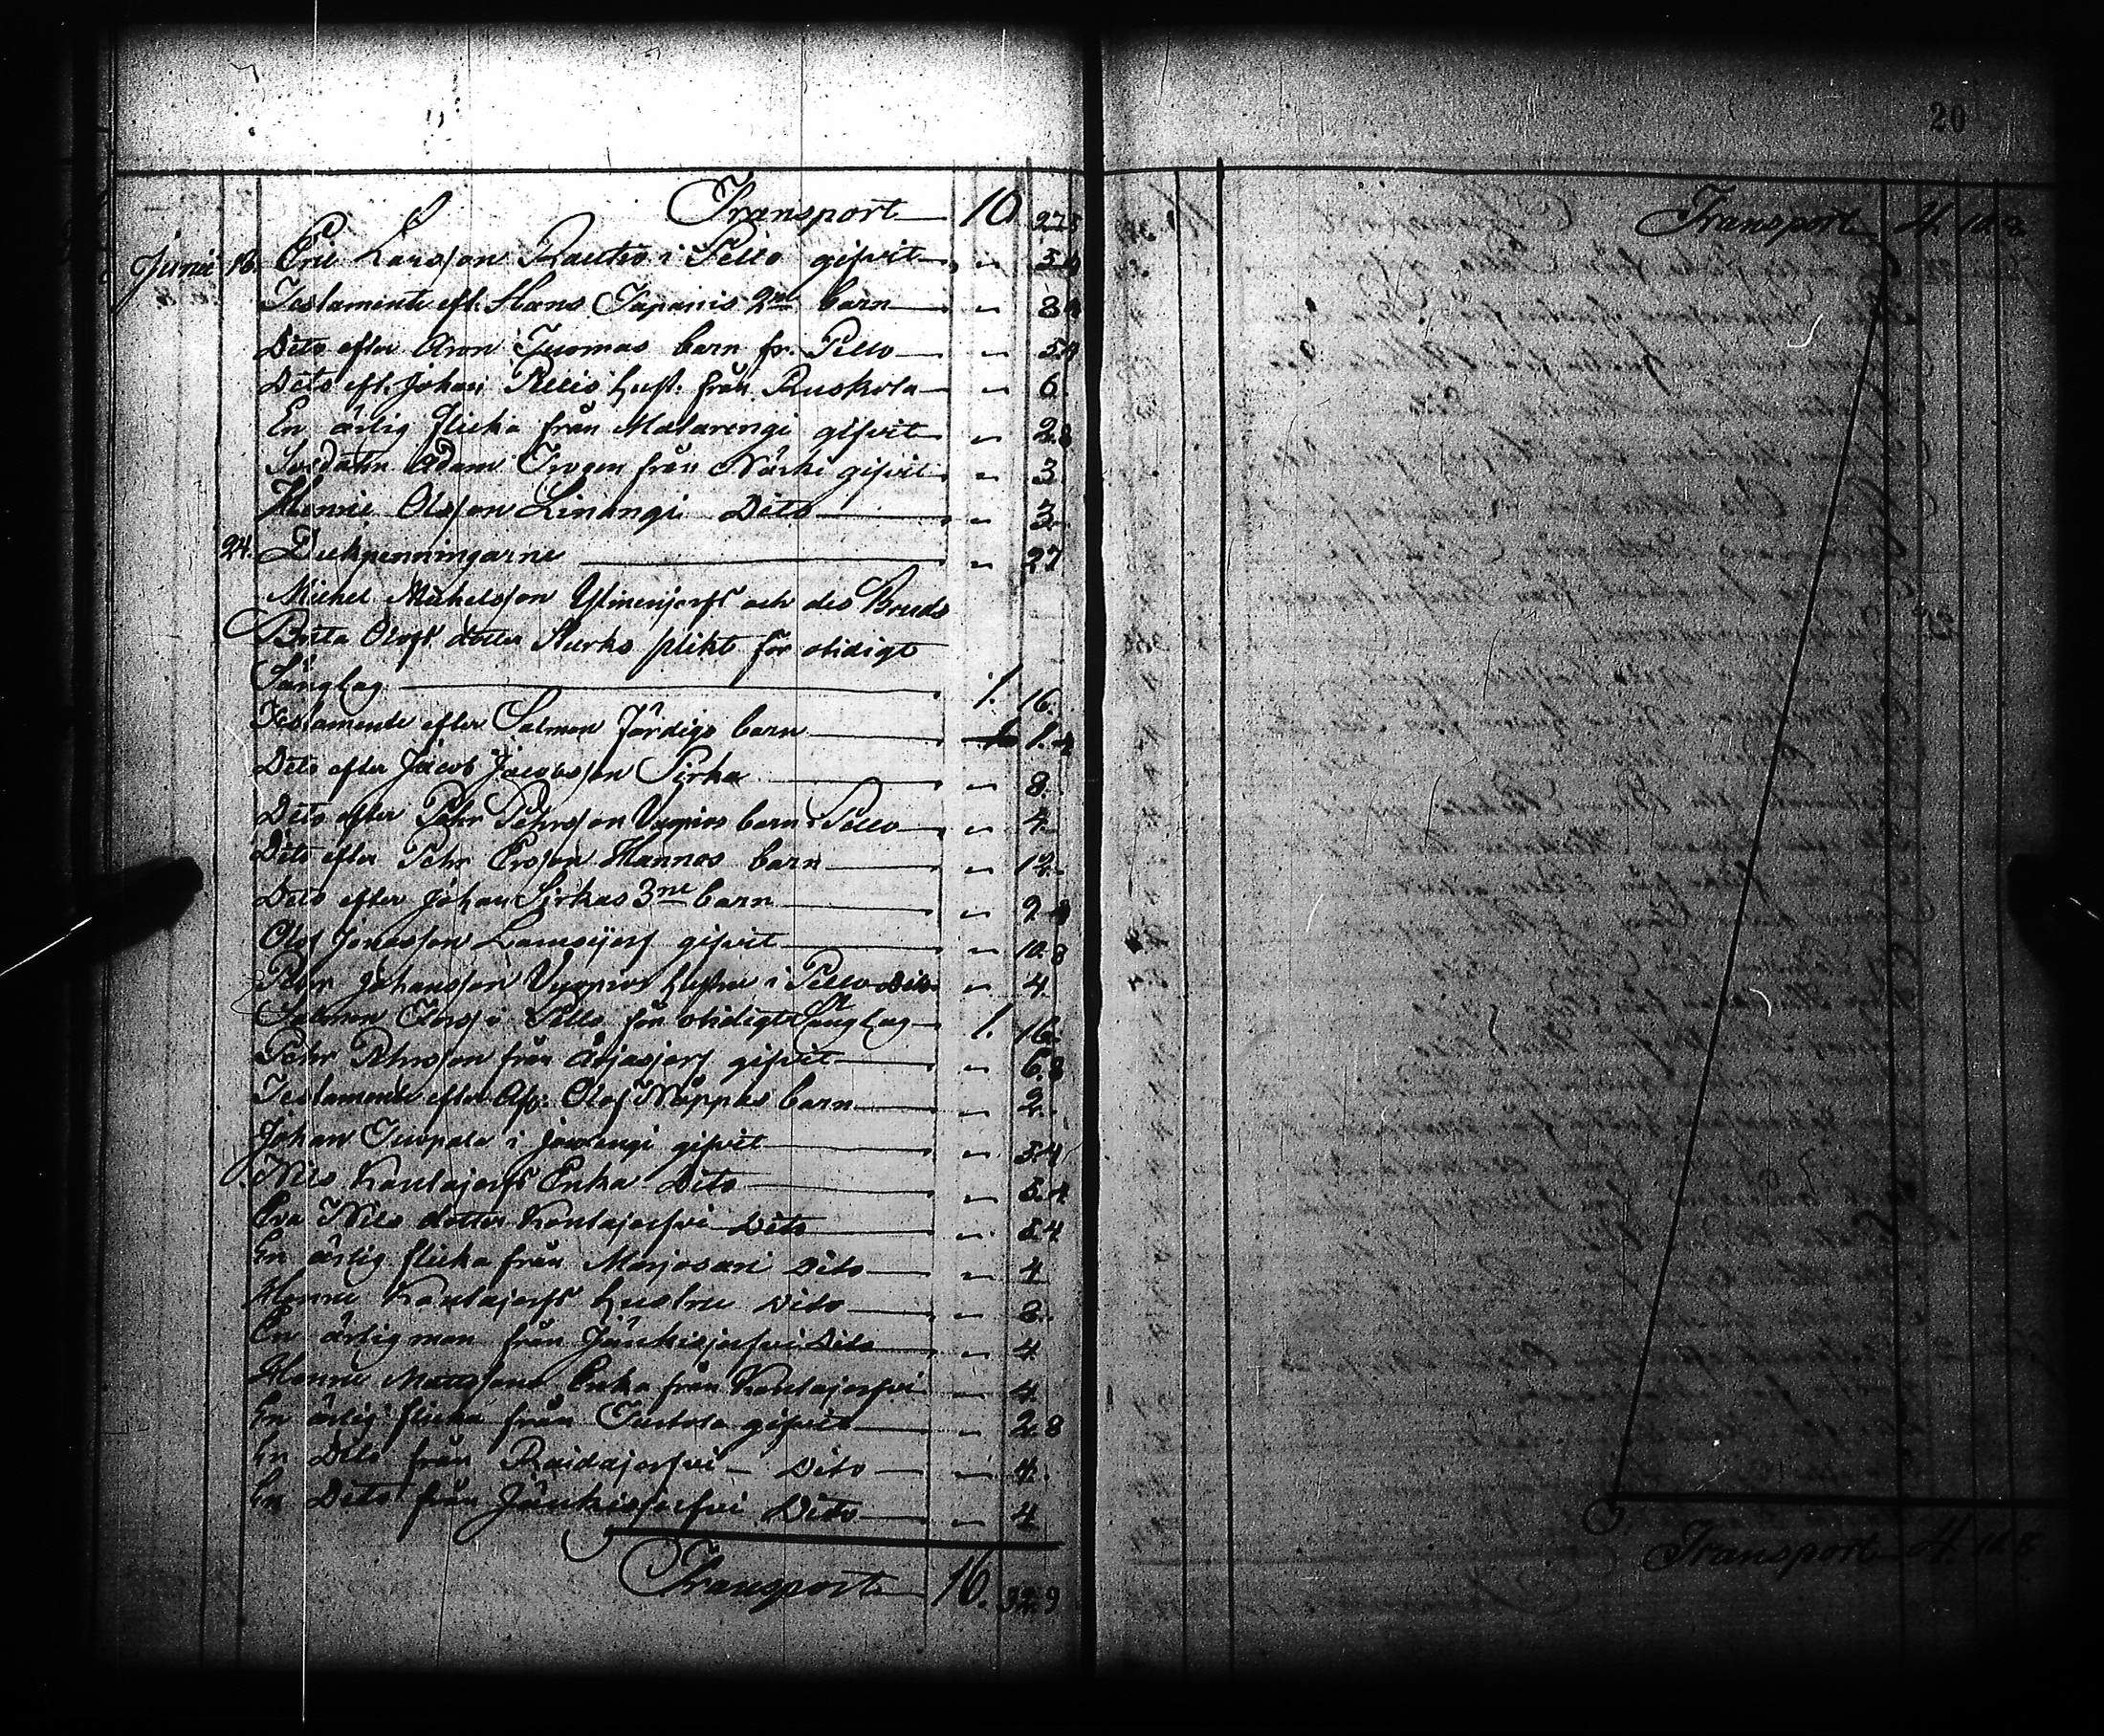 Transport 10. 27.8
Junii 16. Eric Larsson Rautio i Pello gifvit " 5.4
Testamente eft. Hans Tapanis 2ne barn " 8.4
Dito efter Aron Juomas barn fr. Pello " 5.4
Dito eft. Johan hust. från Ruskola " 6.
En ärlig flicka från Matarengi gifvit " 2.8
Soldaten Adam från Närki gifvit " 3.
Henric Olsson Linangi Dito " 3.
24. " 27
Michel Michelsson och des Bruds
Brita Olofs dotter Kurks plikt för otidigt
Sänglag 1. 16.
Testamente efter Salmon barn " 1.4
Dito efter Jacob Jacobsson Pirka " 8.
Dito efter Pehr Pehrsson barn i Pello " 4.
Dito efter Pehr Ersson Hannos barn " 12.
Dito efter Johan Sirkas 3ne barn " 2.4
Olof Jonasson gifvit " 10.8
Pehr Johansson hustru i Pello Dito " 4.
Salmon i Pello för otidigt Sänglag 1. 16.
Pehr Pehrsson från gifvit " 6.8
Testamente efter Afl: Olof Näppas barn " 2.
Johan Tuopala i Juoxengi gifvit " 5.4
Nils Kantajerfs Enka Dito " 5.4
Eva Nils dotter Kantajerfvi Dito " 5.4
En ärlig flicka från Marjosari Dito " 4
Henric Kantajerfs hustru Dito " 8.
En ärlig man från Jänkisjerfvi Dito " 4
Henric Mattssons Enka från Kantajerfvi " 4
En ärlig flicka från Turtola gifvit " 2.8
En Dito från Raidajerfvi Dito " 4.
En Dito från Jänkisjerfvi Dito " 4
Transport 16. 32.9
20
Transport 4. 10.8
Transport 4. 10.8